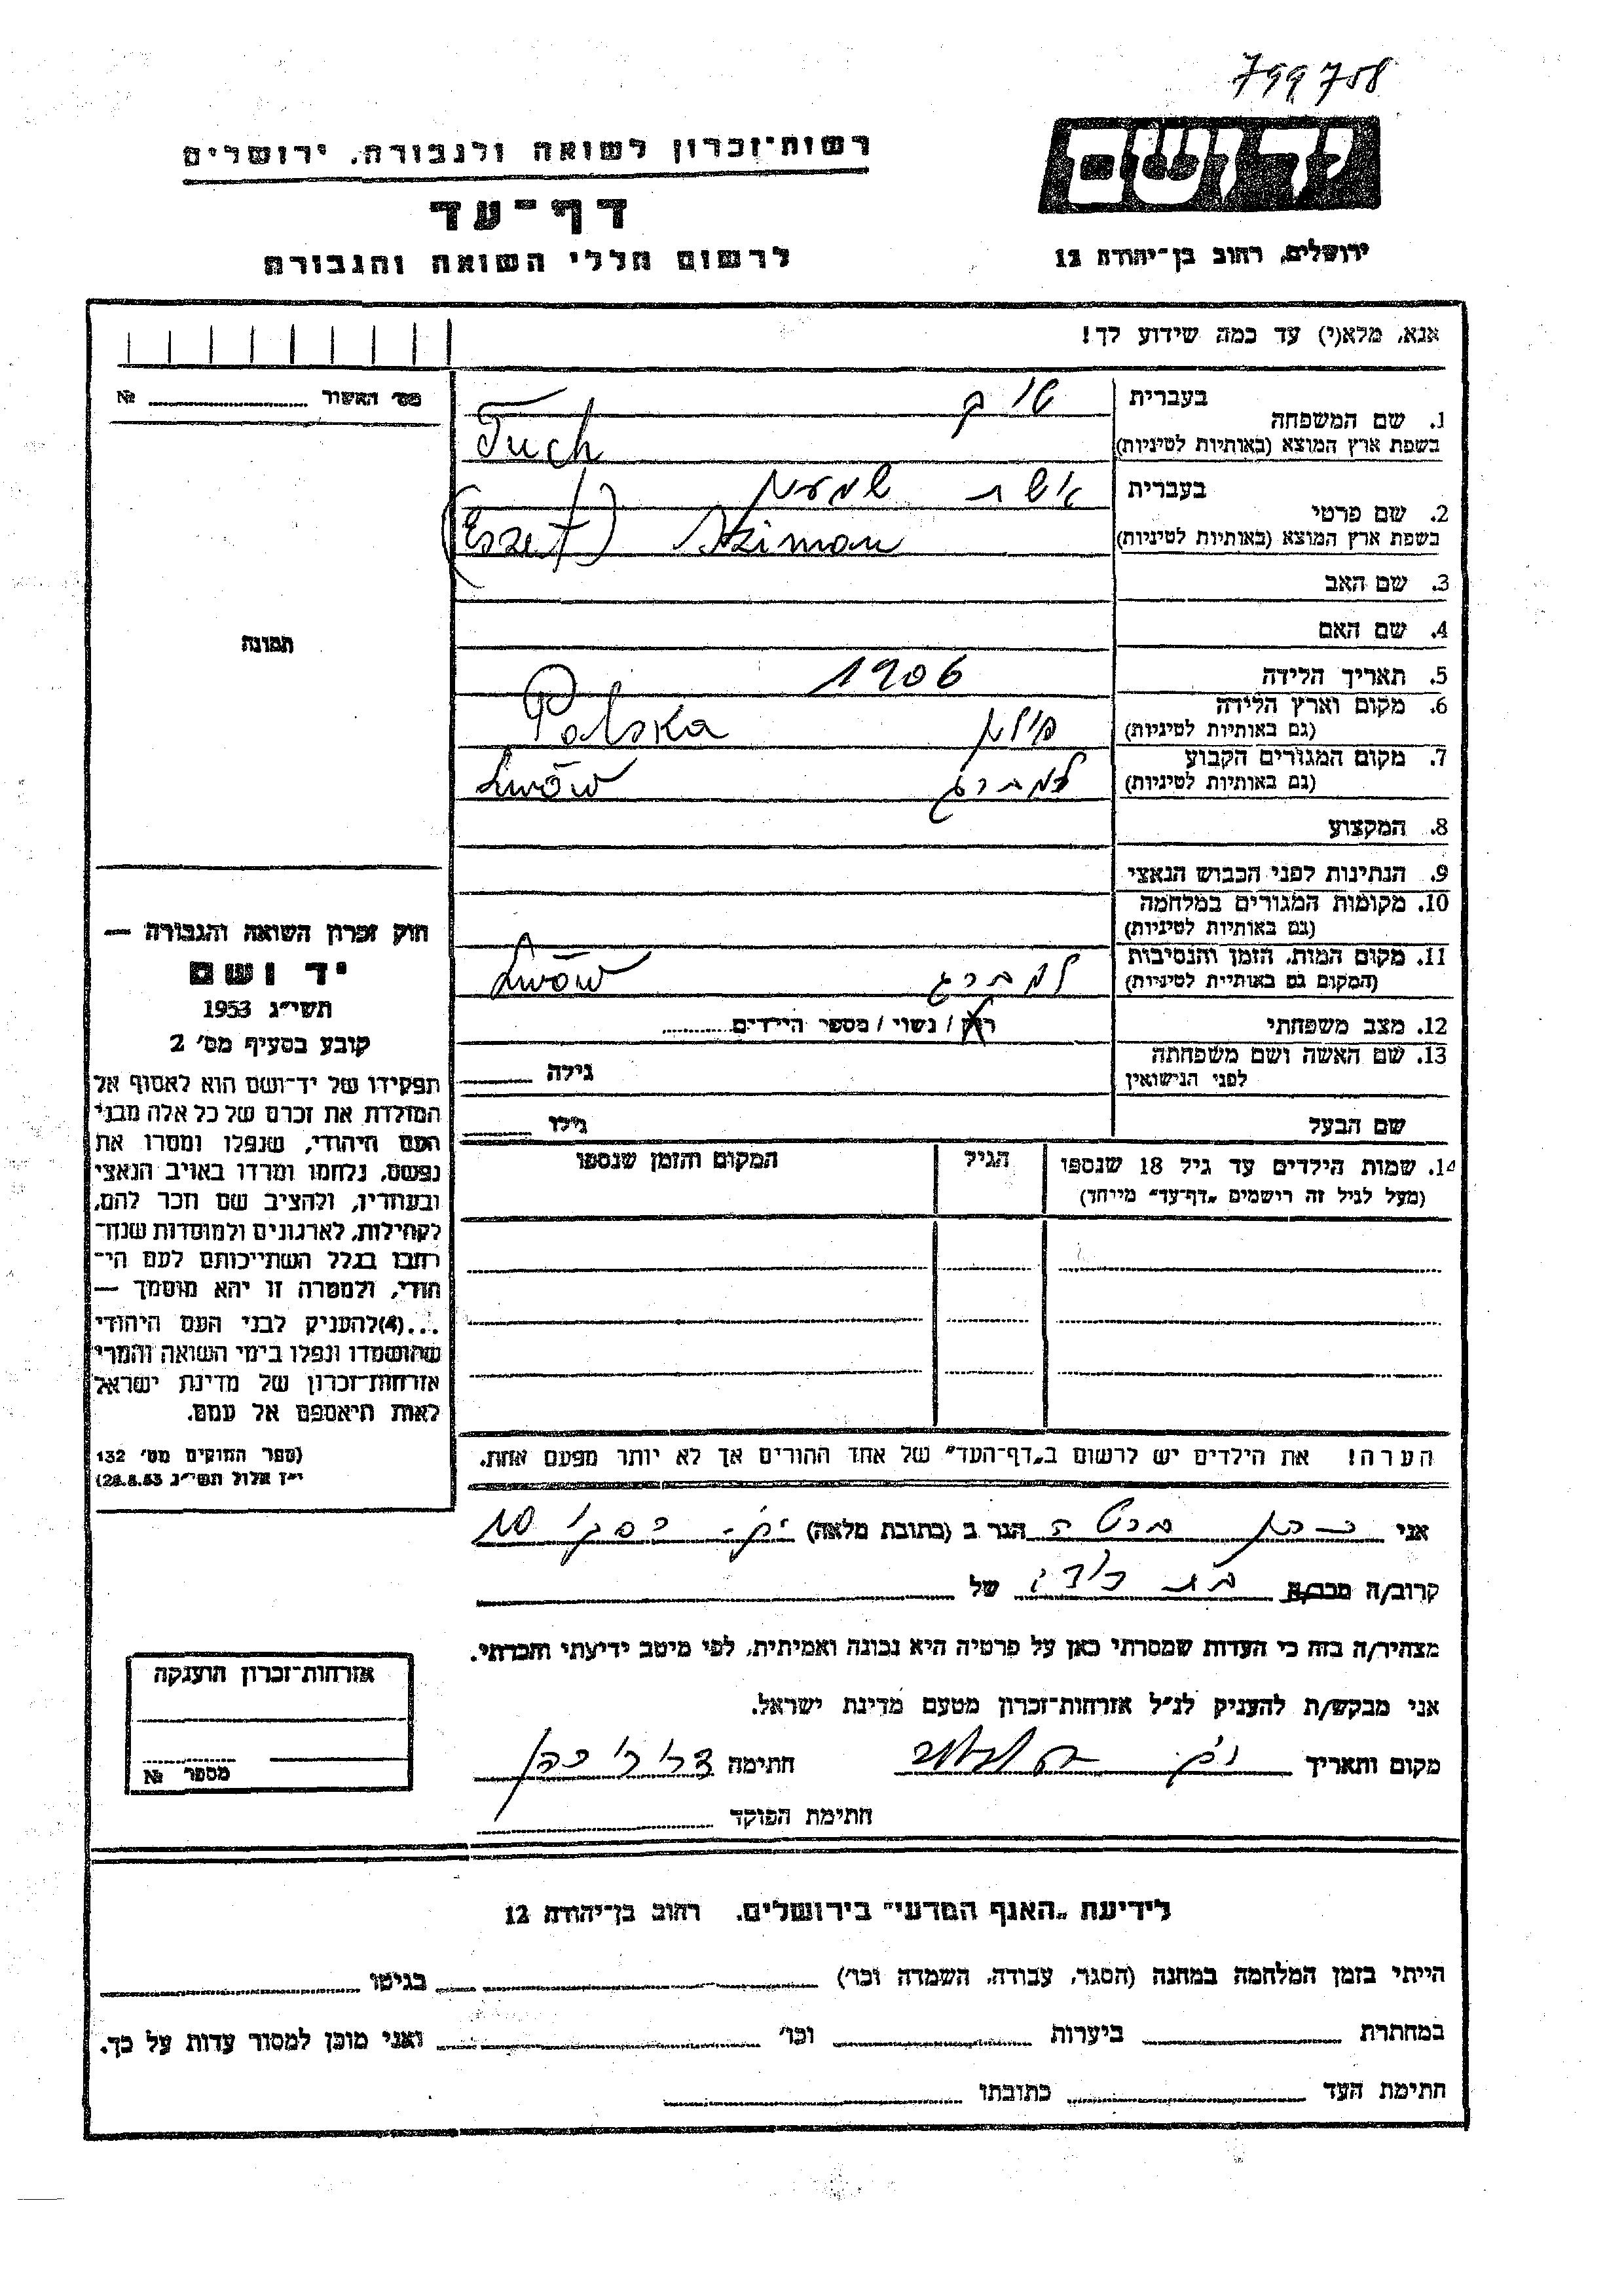 799708
יד ושם
רשות־זכרון לשואה ולגבורה, ירושלים
דף־עד
לרשום חללי השואה והגבורה
ירושלים, רחוב בן־יהודה 12
אנא, מלא(י) עד כמה שידוע לך!
מס' האשור №
1. שם המשפחה
בעברית טוך
בשפת ארץ המוצא (באותיות לטיניות) Tuch
2. שם פרטי
בעברית אשת שמעון
בשפת ארץ המוצא (באותיות לטיניות) (Eszet) Szimon
3. שם האב
4. שם האם
תמונה
5. תאריך הלידה 1906
6. מקום וארץ הלידה
(גם באותיות לטיניות) פולין Polska
7. מקום המגורים הקבוע
(גם באותיות לטיניות) למברג Lwów
8. המקצוע
9. הנתינות לפני הכבוש הנאצי
10. מקומות המגורים במלחמה
(גם באותיות לטיניות)
11. מקום המות, הזמן והנסיבות
(המקום גם באותיות לטיניות) למברג Lwów
12. מצב משפחתי רוק / נשוי / מספר הילדים
13. שם האשה ושם משפחתה
לפני הנישואין גילה
שם הבעל גילו
14. שמות הילדים עד גיל 18 שנספו הגיל המקום והזמן שנספו
(מעל לגיל זה רישמים „דף־עד" מייחד)
הערה! את הילדים יש לרשום ב„דף־העד" של אחד ההורים אך לא יותר מפעם אחת.
חוק זכרון השואה והגבורה —
יד ושם
תשי"ג 1953
קובע בסעיף מס' 2
תפקידו של יד־ושם הוא לאסוף אל
המולדת את זכרם של כל אלה מבני
העם היהודי, שנפלו ומסרו את
נפשם, נלחמו ומרדו באויב הנאצי
ובעוזריו, ולהציב שם וזכר להם,
לקהילות, לארגונים ולמוסדות שנח־
רבו בגלל השתייכותם לעם הי־
הודי, ולמטרה זו יהא מוסמך —
...(4)להעניק לבני העם היהודי
שהושמדו ונפלו בימי השואה והמרי
אזרחות־זכרון של מדינת ישראל
לאות היאספם אל עמם.
(ספר החוקים מס' 132
י"ז אלול תשי"ג 28.8.53)
אני כהן הגר ב (כתובת מלאה)
קרוב/ה מכר/ה בת דודה של
מצהיר/ה בזה כי העדות שמסרתי כאן על פרטיה היא נכונה ואמיתית, לפי מיטב ידיעתי והכרתי.
אני מבקש/ת להעניק לנ"ל אזרחות־זכרון מטעם מדינת ישראל.
מקום ותאריך חתימה כהן
חתימת הפוקד
אזרחות־זכרון הוענקה
מספר №
לידיעת „האגף המדעי" בירושלים, רחוב בן־יהודה 12
הייתי בזמן המלחמה במחנה (הסגר, עבודה, השמדה וכו') בגיטו
במחתרת ביערות וכו' ואני מוכן למסור עדות על כך.
חתימת העד כתובתו